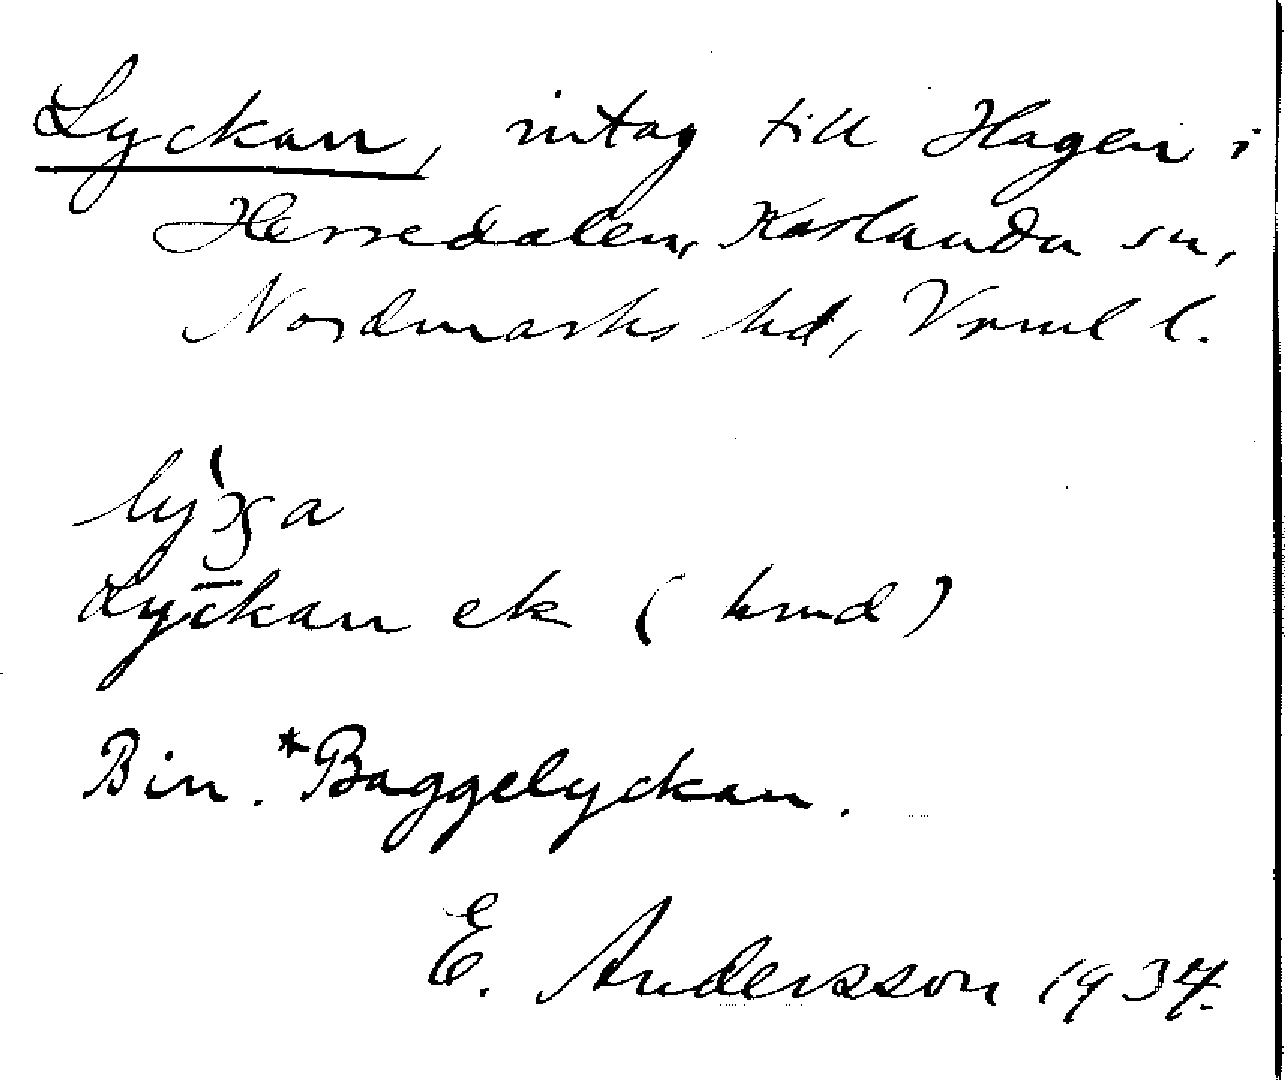 Lyckan, intag till Hagen i
Herredalen, Karlanda sn,
Nordmarks hd, Vrml l.
Lyckan ek (hmd)
Bin. *Baggelyckan.
E. Andersson 1934.